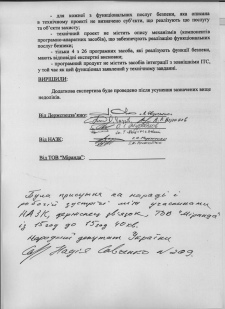 - для кожної з функціональних послуг безпеки, яка описана
в технічному проекті не визначено суб'єкти, що реалізують цю послугу
та об'єкти захисту;
- технічний проект не містить опису механізмів (компонентів
програмно-апаратних засобів), що забезпечують реалізацію функціональних
послуг безпеки;
- тільки 4 з 26 програмних засобів, які реалізують функції безпеки,
мають відповідні експертні висновки;
- програмний продукт не містить засобів інтеграції з зовнішніми ІТС,
у той час як цей функціонал заявлений у технічному завданні.
ВИРІШИЛИ:
Додаткова експертиза буде проведено після усунення зазначених вище
недоліків.
Від Держспецзв'язку:
Від НАЗК:
Від ТОВ "Міранда":
Була присутня на нараді і
робочій зустрічі між учасниками
НАЗК, ТОВ "Міранда"
із 15 до 15 год 40 хв.
Народний депутат України
Надія Савченко №209.